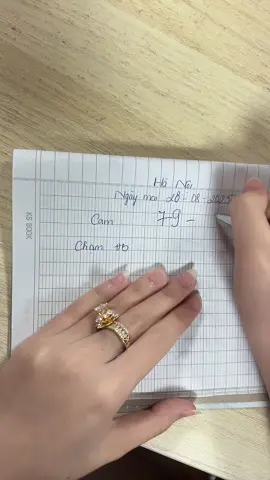 Hà Nội
Ngày mai 28 - 08 - 2025
Cam 79 -
Chạm
KS BOOK